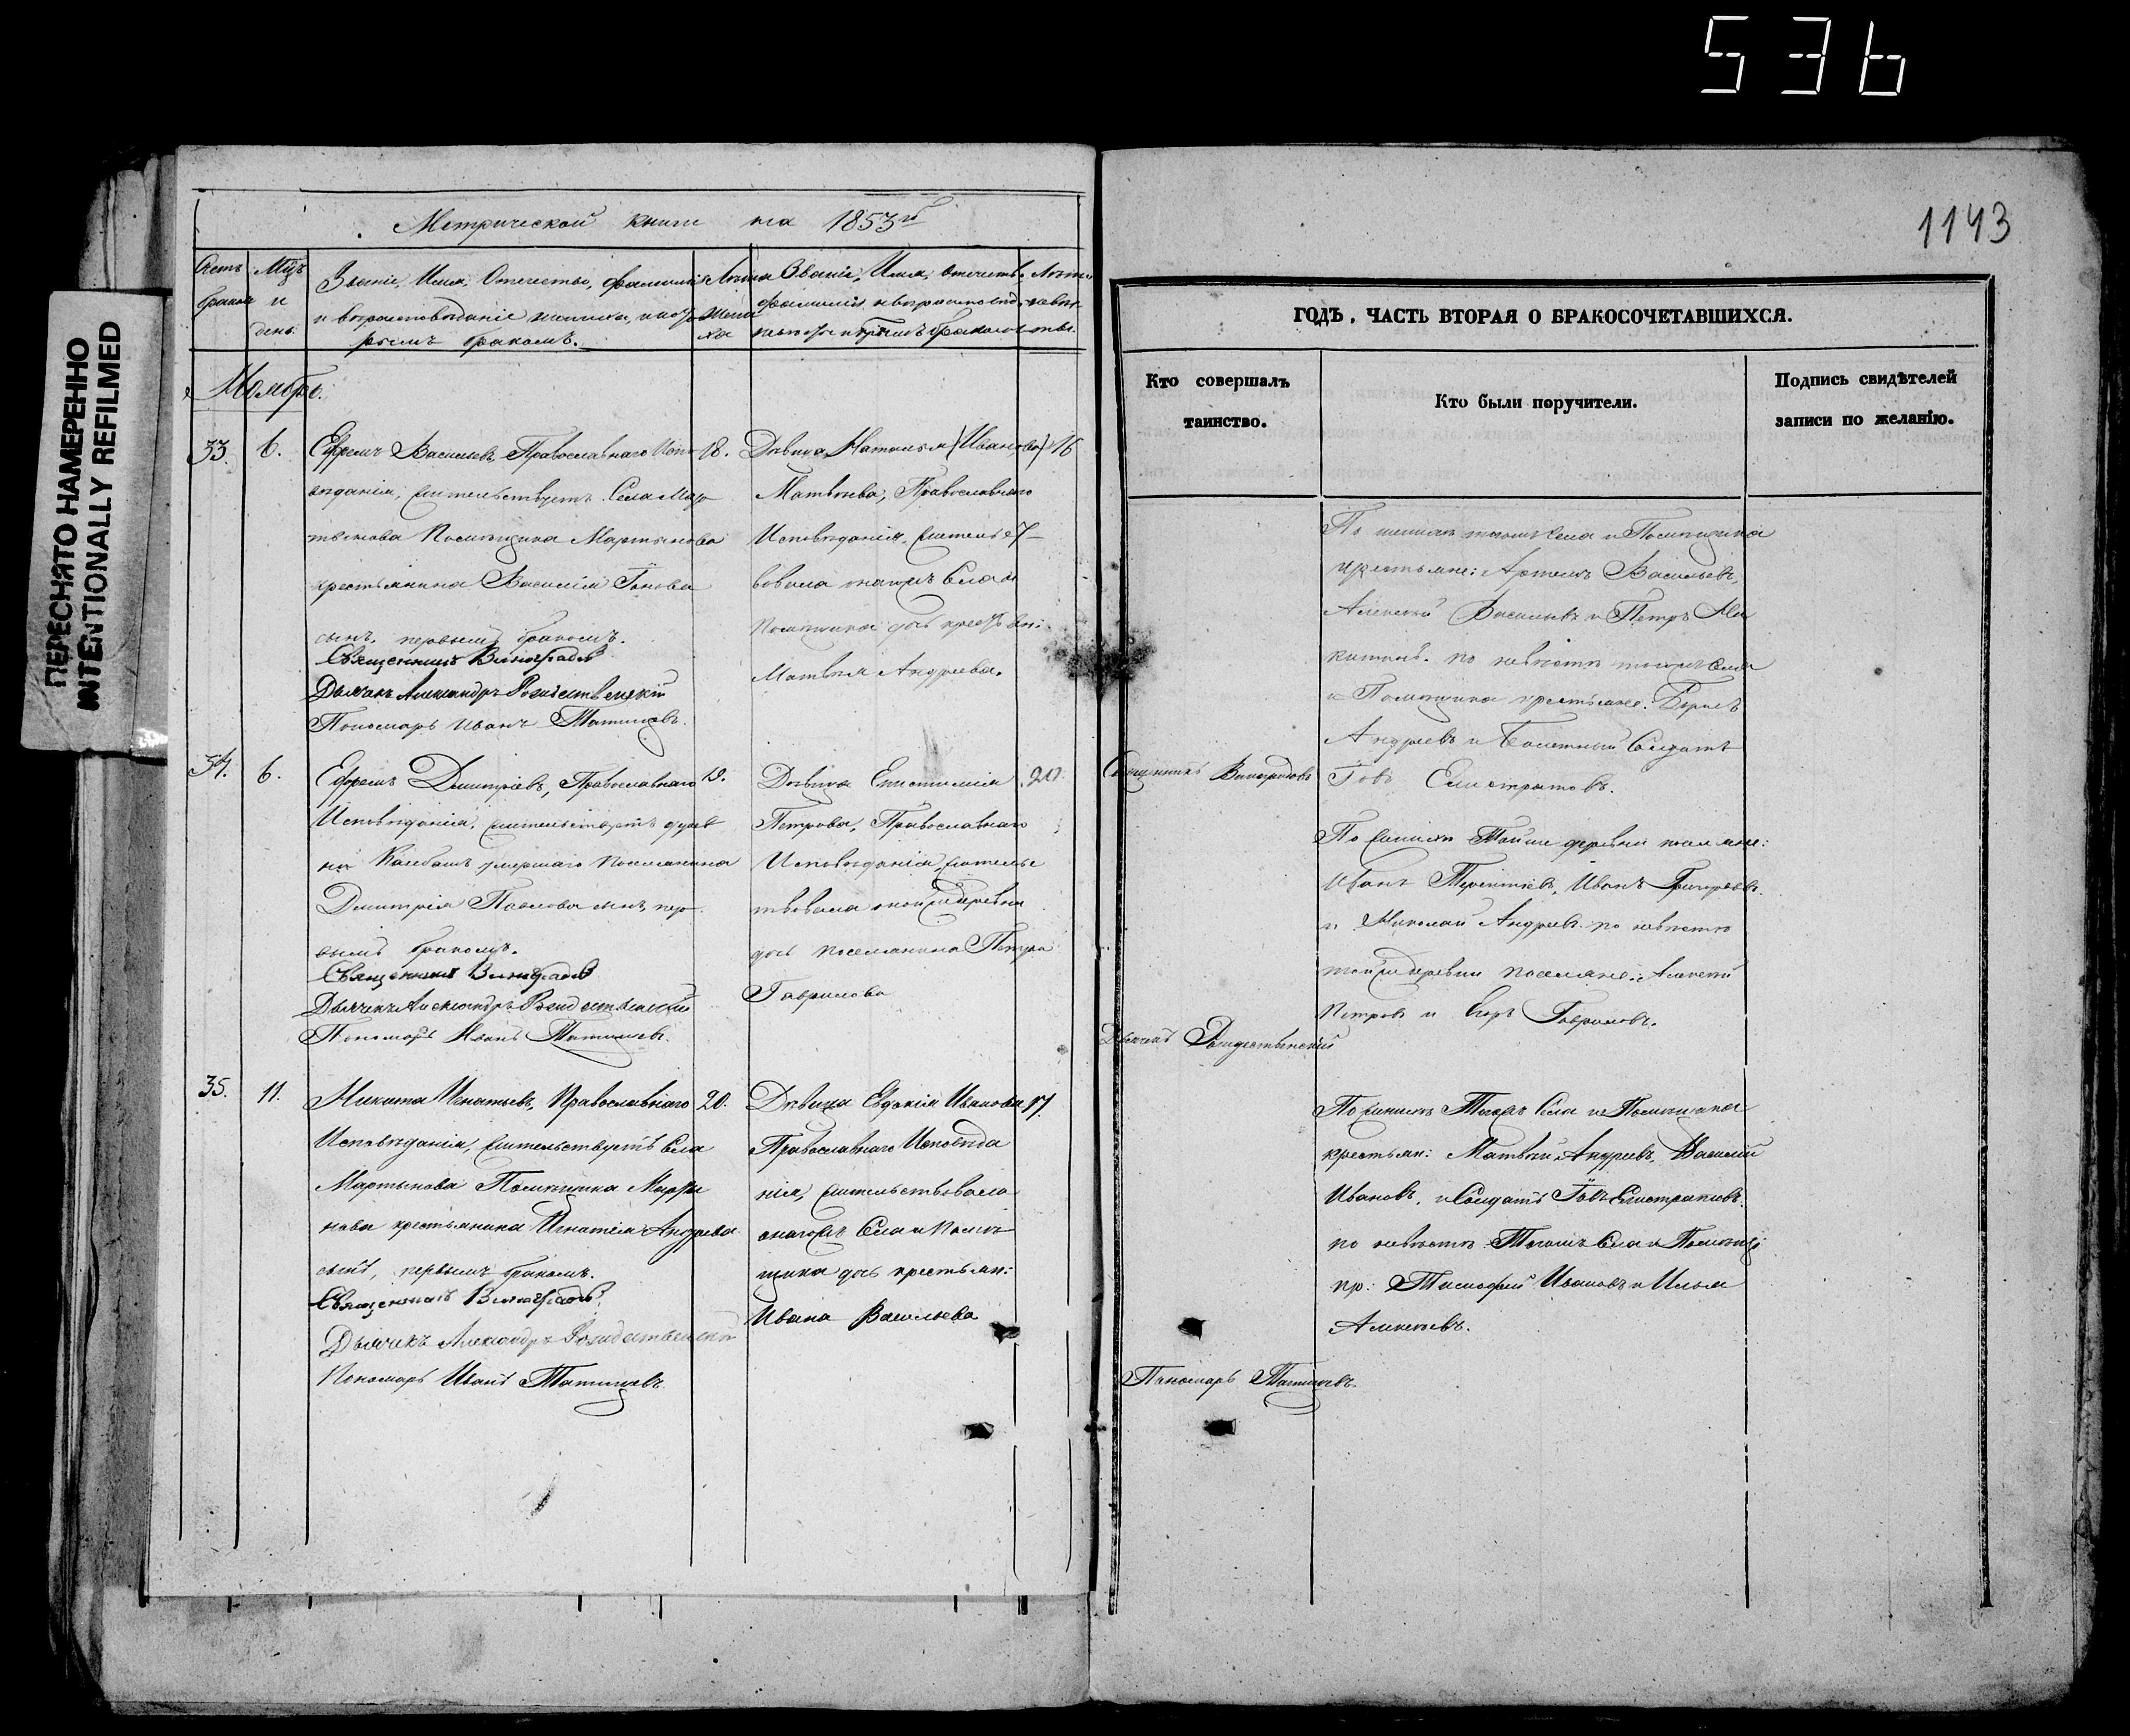 536
1143
ПЕРЕСНЯТО НАМЕРЕННО
INTENTIONALLY REFILMED
Метрической книги на 1853й
Мцъ
и
день
Званіе, Имя, Отечество, фамилія
рымъ бракомъ.
Лѣта
жени
ха
Званіе, Имя, отчество,
Ноябрь.
33.
6.
Ефремъ Васильевъ Православнаго Испо
вѣданія, жительствуетъ Села Мар
тынова Помѣщика Мартынова
крестьянина Василія Іонова
сынъ, первымъ бракомъ.
Священникъ Виноградовъ
Дьячекъ Александръ Рождественскій
Пономарь Иванъ Татищевъ.
18.
Дѣвица Наталья (Иванова)
Матвѣева, Православнаго
Исповѣданія, жительст-
вовала тогожъ Села и
Помѣщика дочь крестьяни:
Матвѣя Андреева.
16
34.
6.
Ефремъ Дмитріевъ, Православнаго
Исповѣданія, жительствуетъ дерев
ни Колбашъ умершаго поселянина
Дмитрія Павлова сынъ, пер
вымъ бракомъ.
Священникъ Виноградовъ
Дьячекъ Александръ Рождественскій
Пономарь Иванъ Татищевъ.
19.
Дѣвица Епистимія
Петрова, Православнаго
Исповѣданія жительс
твовала оной деревни
дочь поселянина Петра
Гаврилова
20.
35.
11.
Никита Игнатьевъ, Православнаго
Исповѣданія, жительствуетъ Села
Мартынова Помѣщика Марты
нова крестьянина Игнатія Андреева
сынъ, первымъ бракомъ.
Священникъ Виноградовъ.
Дьячекъ Александръ Рождественскій
Пономарь Иванъ Татищевъ.
20.
Дѣвица Евдокія Иванова
Православнаго Исповѣда
нія, жительствовала
онагожъ Села и Помѣ
щика дочь крестьян:
Ивана Васильева
17
ГОДЪ, ЧАСТЬ ВТОРАЯ О БРАКОСОЧЕТАВШИХСЯ.
Кто совершалъ
таинство.
Кто были поручители.
Подпись свидѣтелей
записи по желанію.
Священникъ Виноградовъ
Дьячекъ Рождественскій
Пономарь Татищевъ.
По женихѣ тогожъ Села и Помѣщика
крестьяне: Артемъ Васильевъ,
Алексѣй Васильевъ и Петръ Ни
китинъ. по невѣстѣ тогожъ Села
и Помѣщика крестьяне: Борисъ
Андреевъ и Солдатъ
Іовъ Елистратовъ.
По женихѣ Тойже деревни поселяне:
Иванъ Терентіевъ, Иванъ Григорьевъ.
и Николай Андреевъ по невѣстѣ
тойже деревни поселяне: Алексѣй
Петровъ и Егоръ Гавриловъ.
По женихѣ Тогожъ Села и Помѣщика
крестьян: Матвѣй Андреевъ, Василій
Ивановъ, и Солдатъ Іовъ Елистратовъ.
по невѣстѣ Тогожъ Села и Помѣщ:
кр: Тимофей Ивановъ и Илья
Алексѣевъ.